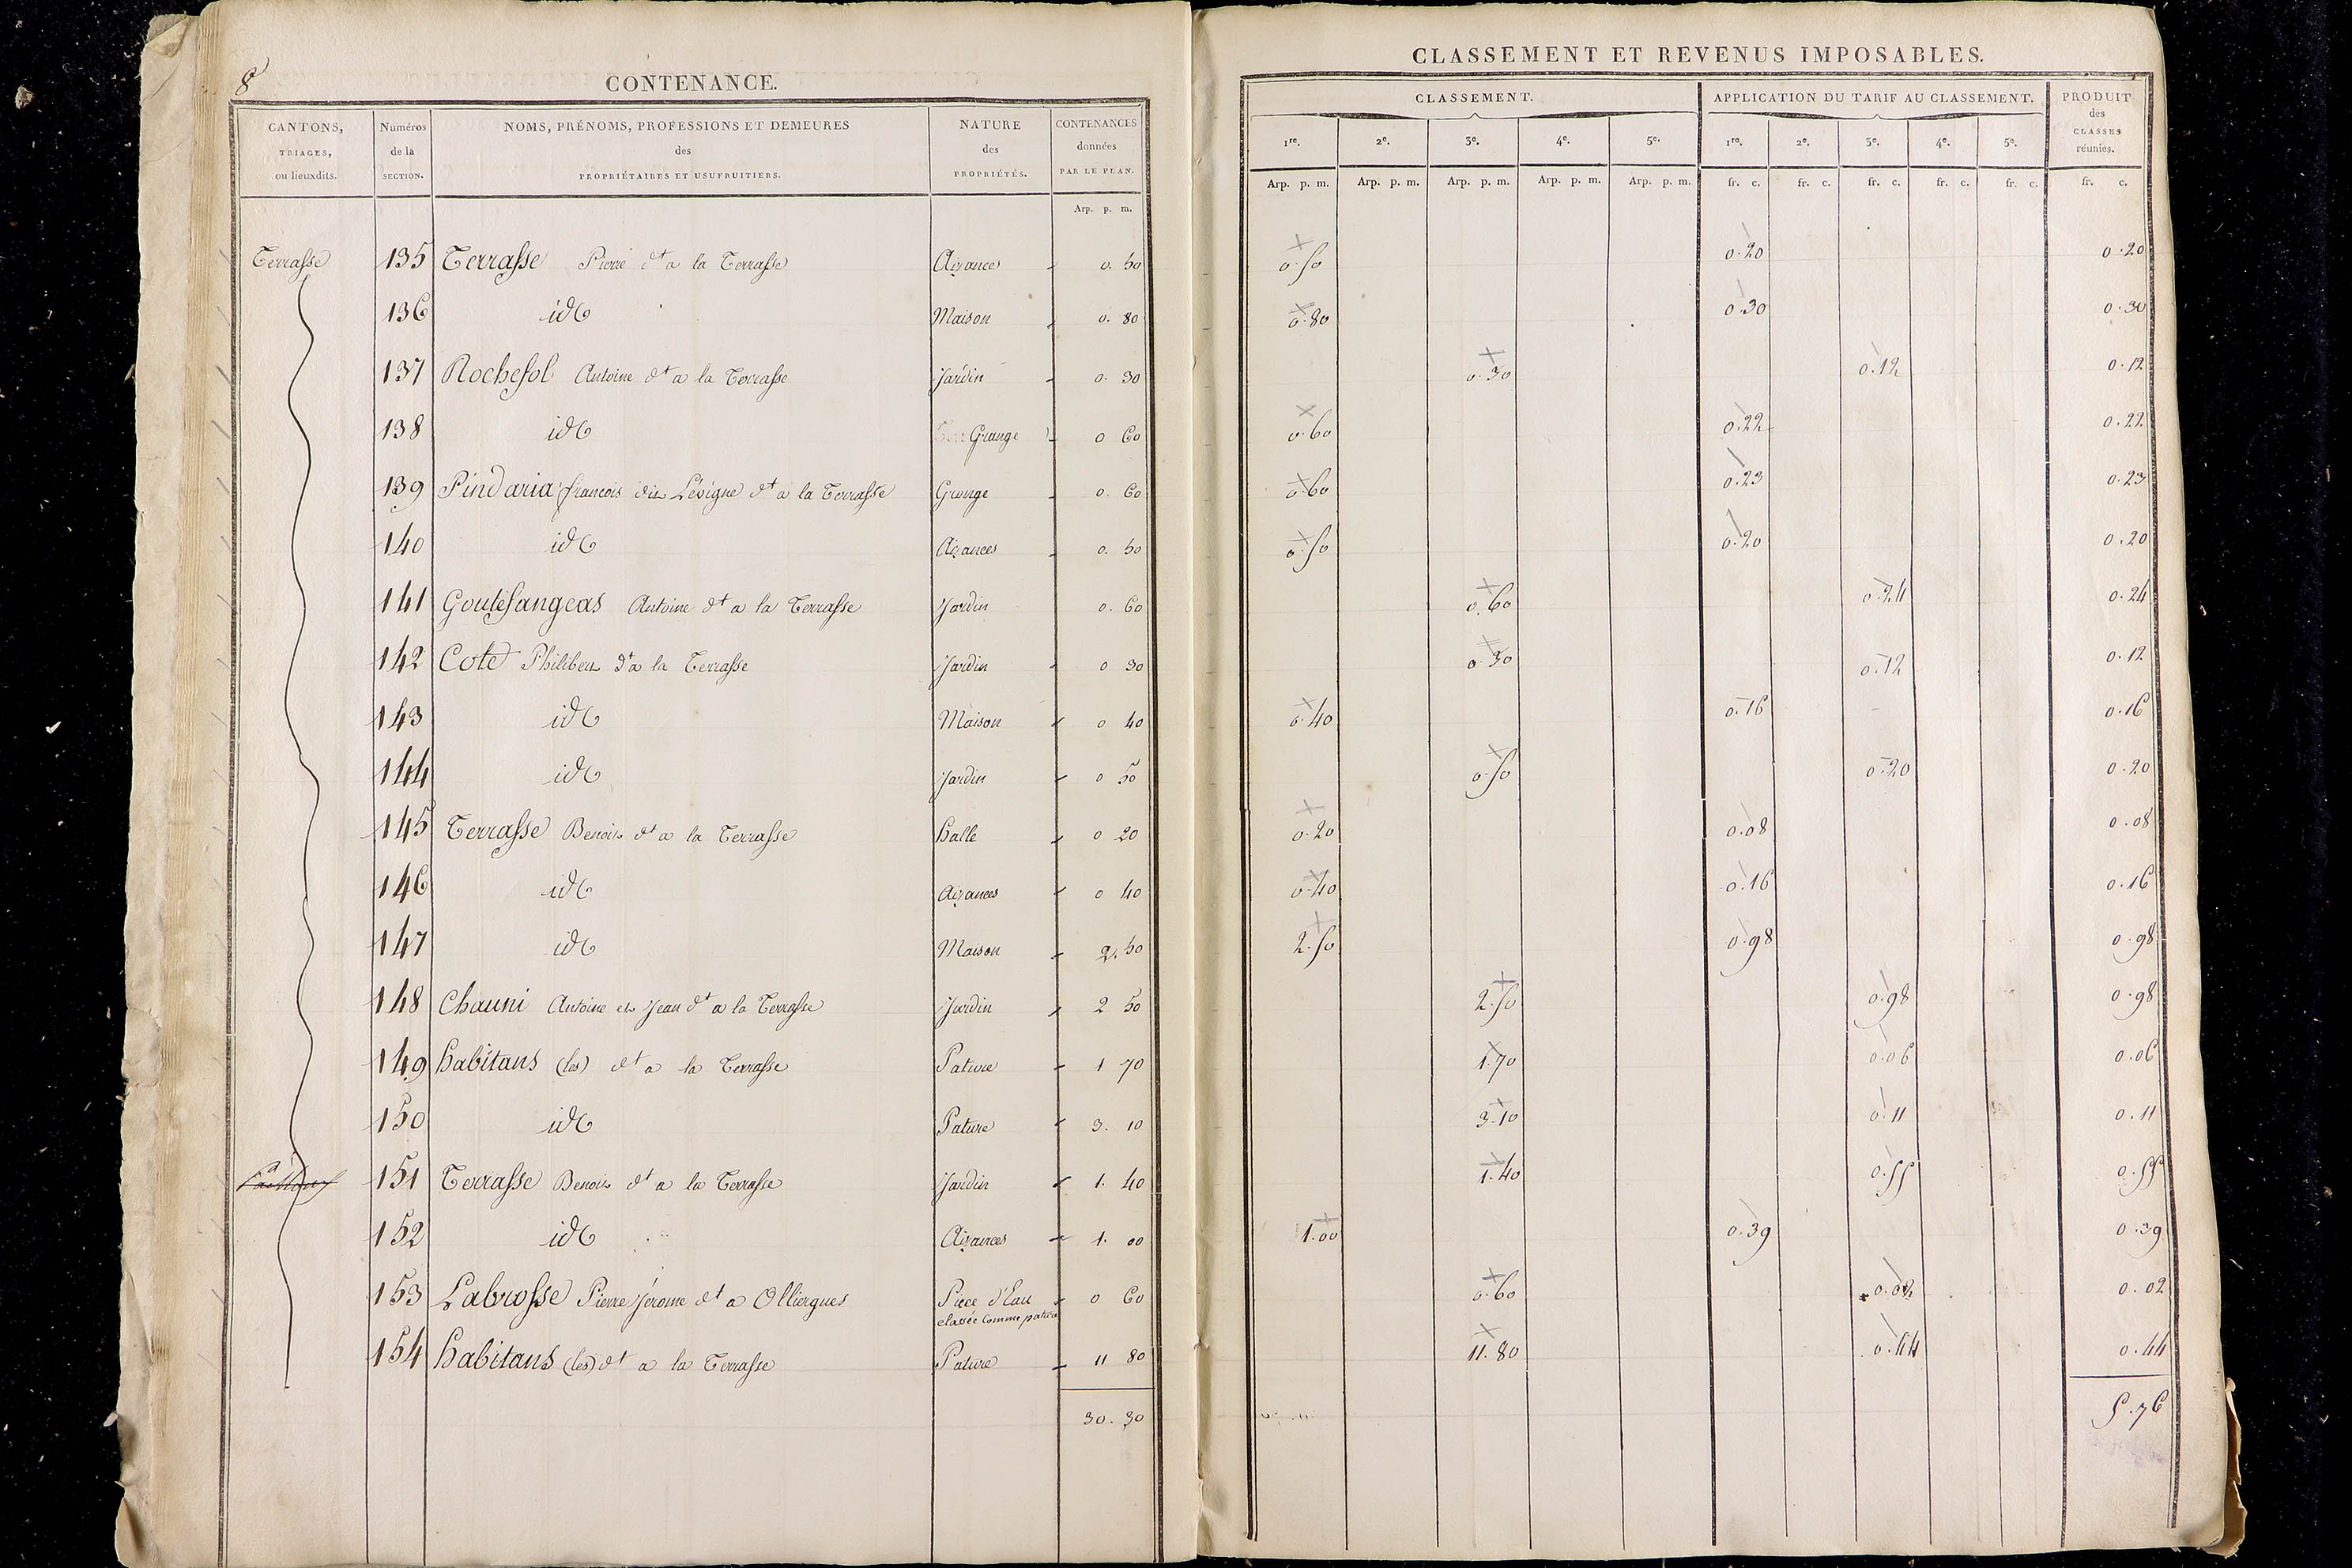 8
CONTENANCE.
CANTONS, TRIAGES, ou lieuxdits. Numéros de la SECTION. NOMS, PRÉNOMS, PROFESSIONS ET DEMEURES des PROPRIÉTAIRES ET USUFRUITIERS. NATURE des PROPRIÉTÉS. CONTENANCES données PAR LE PLAN.
Arp. p. m.
CLASSEMENT ET REVENUS IMPOSABLES.
CLASSEMENT. APPLICATION DU TARIF AU CLASSEMENT. PRODUIT des CLASSES réunies.
1re. 2e. 3e. 4e. 5e. 1re. 2e. 3e. 4e. 5e.
Arp. p. m. Arp. p. m. Arp. p. m. Arp. p. m. Arp. p. m. fr. c. fr. c. fr. c. fr. c. fr. c. fr. c.
Terrasse 135 Terrasse Pierre dt a la Terrasse Aizances 0. 50 0.50 0.20 0.20
136 id Maison 0. 80 0.80 0.30 0.30
137 Rochefol Antoine dt a la Terrasse Jardin 0. 30 0.30 0.12 0.12
138 id Grange 0 60 0.60 0.22 0.22
139 Pindaria francois dit Lévigne dt a la Terrasse Grange 0. 60 0.60 0.23 0.23
140 id Aizances 0. 50 0.50 0.20 0.20
141 Goutefangeas Antoine dt a la Terrasse Jardin 0. 60 0.60 0.24 0.24
142 Cote Philibert dt a la Terrasse Jardin 0 30 0.30 0.12 0.12
143 id Maison 0 40 0.40 0.16 0.16
144 id Jardin 0 50 0.50 0.20 0.20
145 Terrasse Benoit dt a la Terrasse halle 0 20 0.20 0.08 0.08
146 id Aizances 0 40 0.40 0.16 0.16
147 id Maison 2. 50 2.50 0.98 0.98
148 Chauni Antoine et Jean dt a la Terrasse Jardin 2 50 2.50 0.98 0.98
149 habitans (les) dt a la Terrasse Pature 1 70 1.70 0.06 0.06
150 id Pature 3. 10 3.10 0.11 0.11
151 Terrasse Benoit dt a la Terrasse Jardin 1. 40 1.40 0.55 0.55
152 id Aizances 1. 00 1.00 0.39 0.39
153 Labrosse Pierre Jérome dt a Olliergues Piece d'Eau 0 60 0.60 0.02 0.02
classée comme pature
154 habitans (les) dt a la Terrasse Pature 11 80 11.80 0.44 0.44
30. 30 5.76